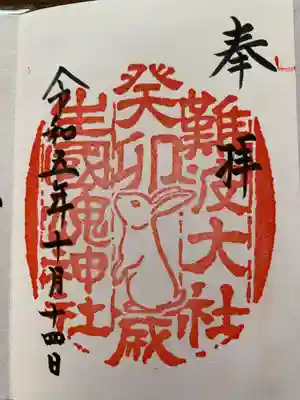 奉拝
難波大社
癸卯歳
生國魂神社
令和五年十月十四日